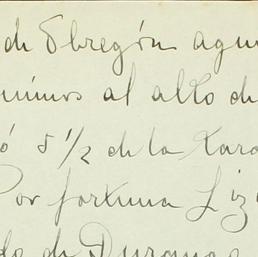 de Obregón agu
nimos al alto de
ó 5 1/2 de la tard
Por fortuna Liz
do de Durango